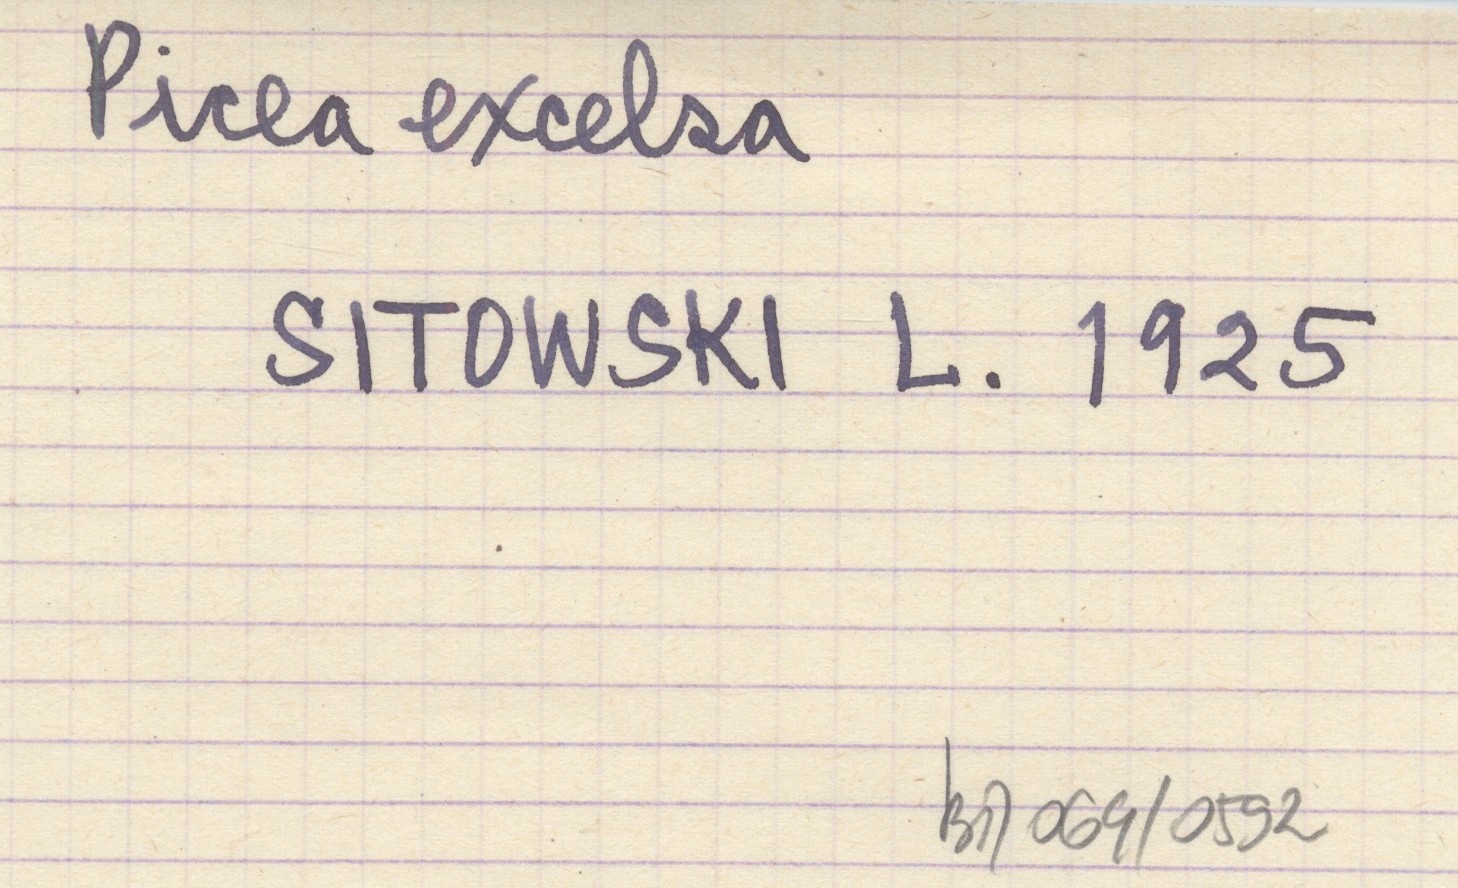 Picea excelsa
SITOWSKI L. 1925
069/0592